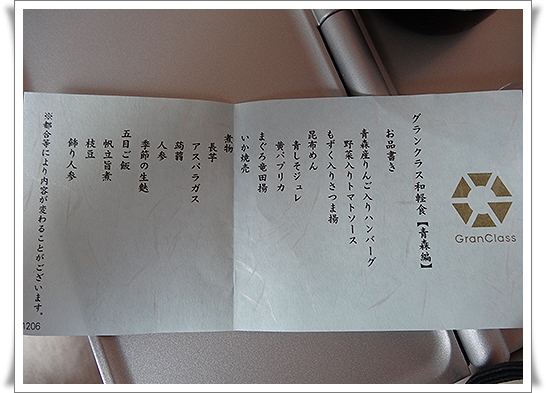 GranClass
グランクラス和軽食【青森編】
お品書き
青森産りんご入りハンバーグ
野菜入りトマトソース
もずく入りさつま揚
昆布めん
青しそジュレ
黄パプリカ
まぐろ竜田揚
いか焼売
煮物
長芋
アスパラガス
蒟蒻
人参
季節の生麩
五目ご飯
帆立旨煮
枝豆
飾り人参
※都合等により内容が変わることがございます。
1206